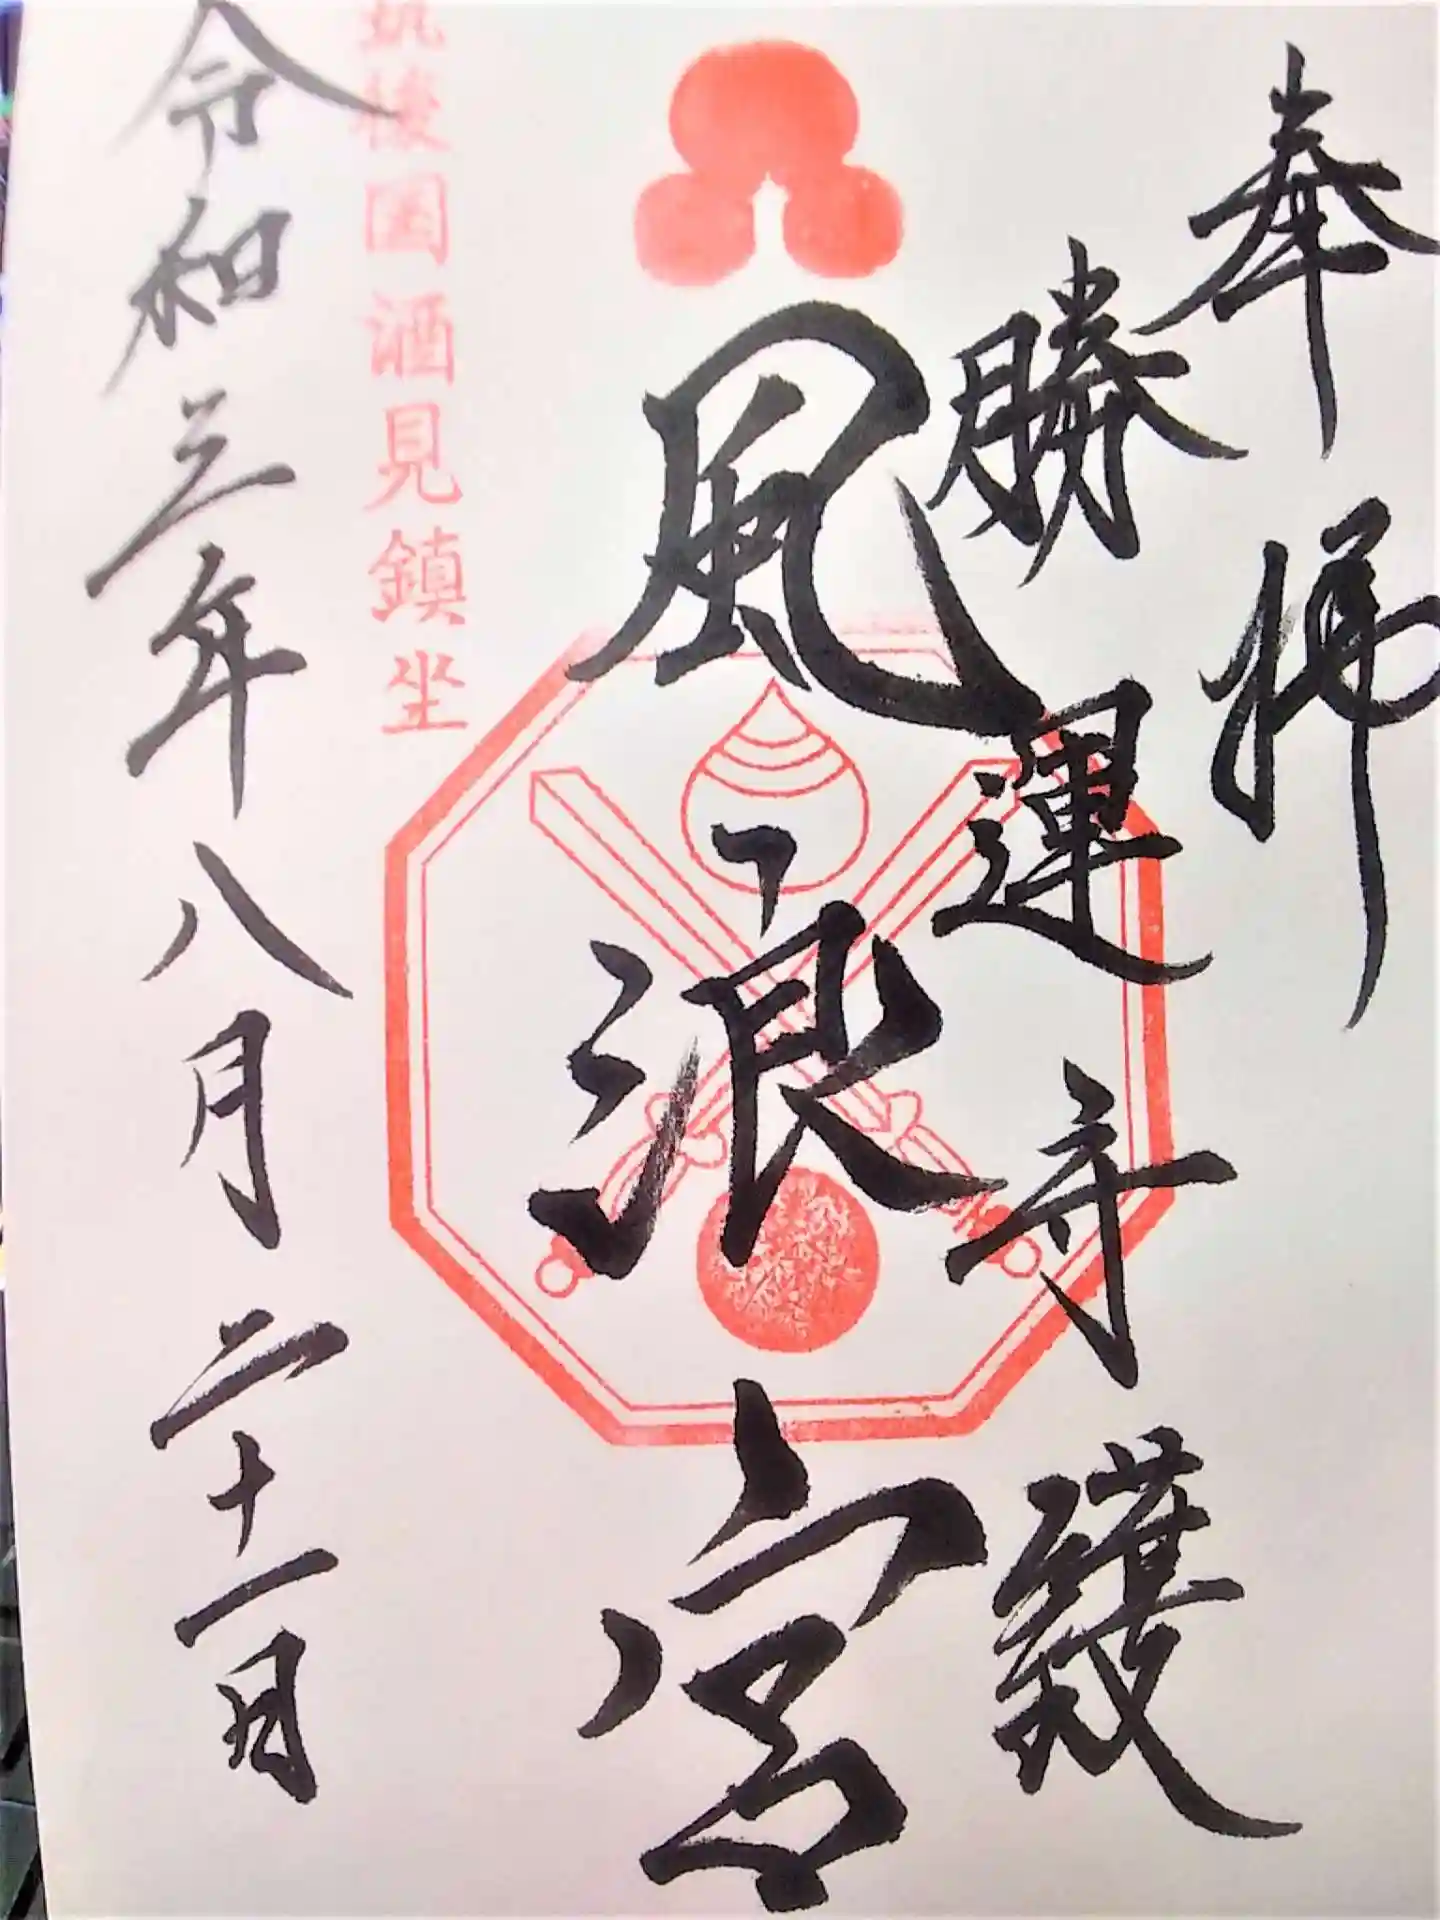 奉拝
勝運守護
風浪宮
筑後國酒見鎮坐
令和三年八月二十一日